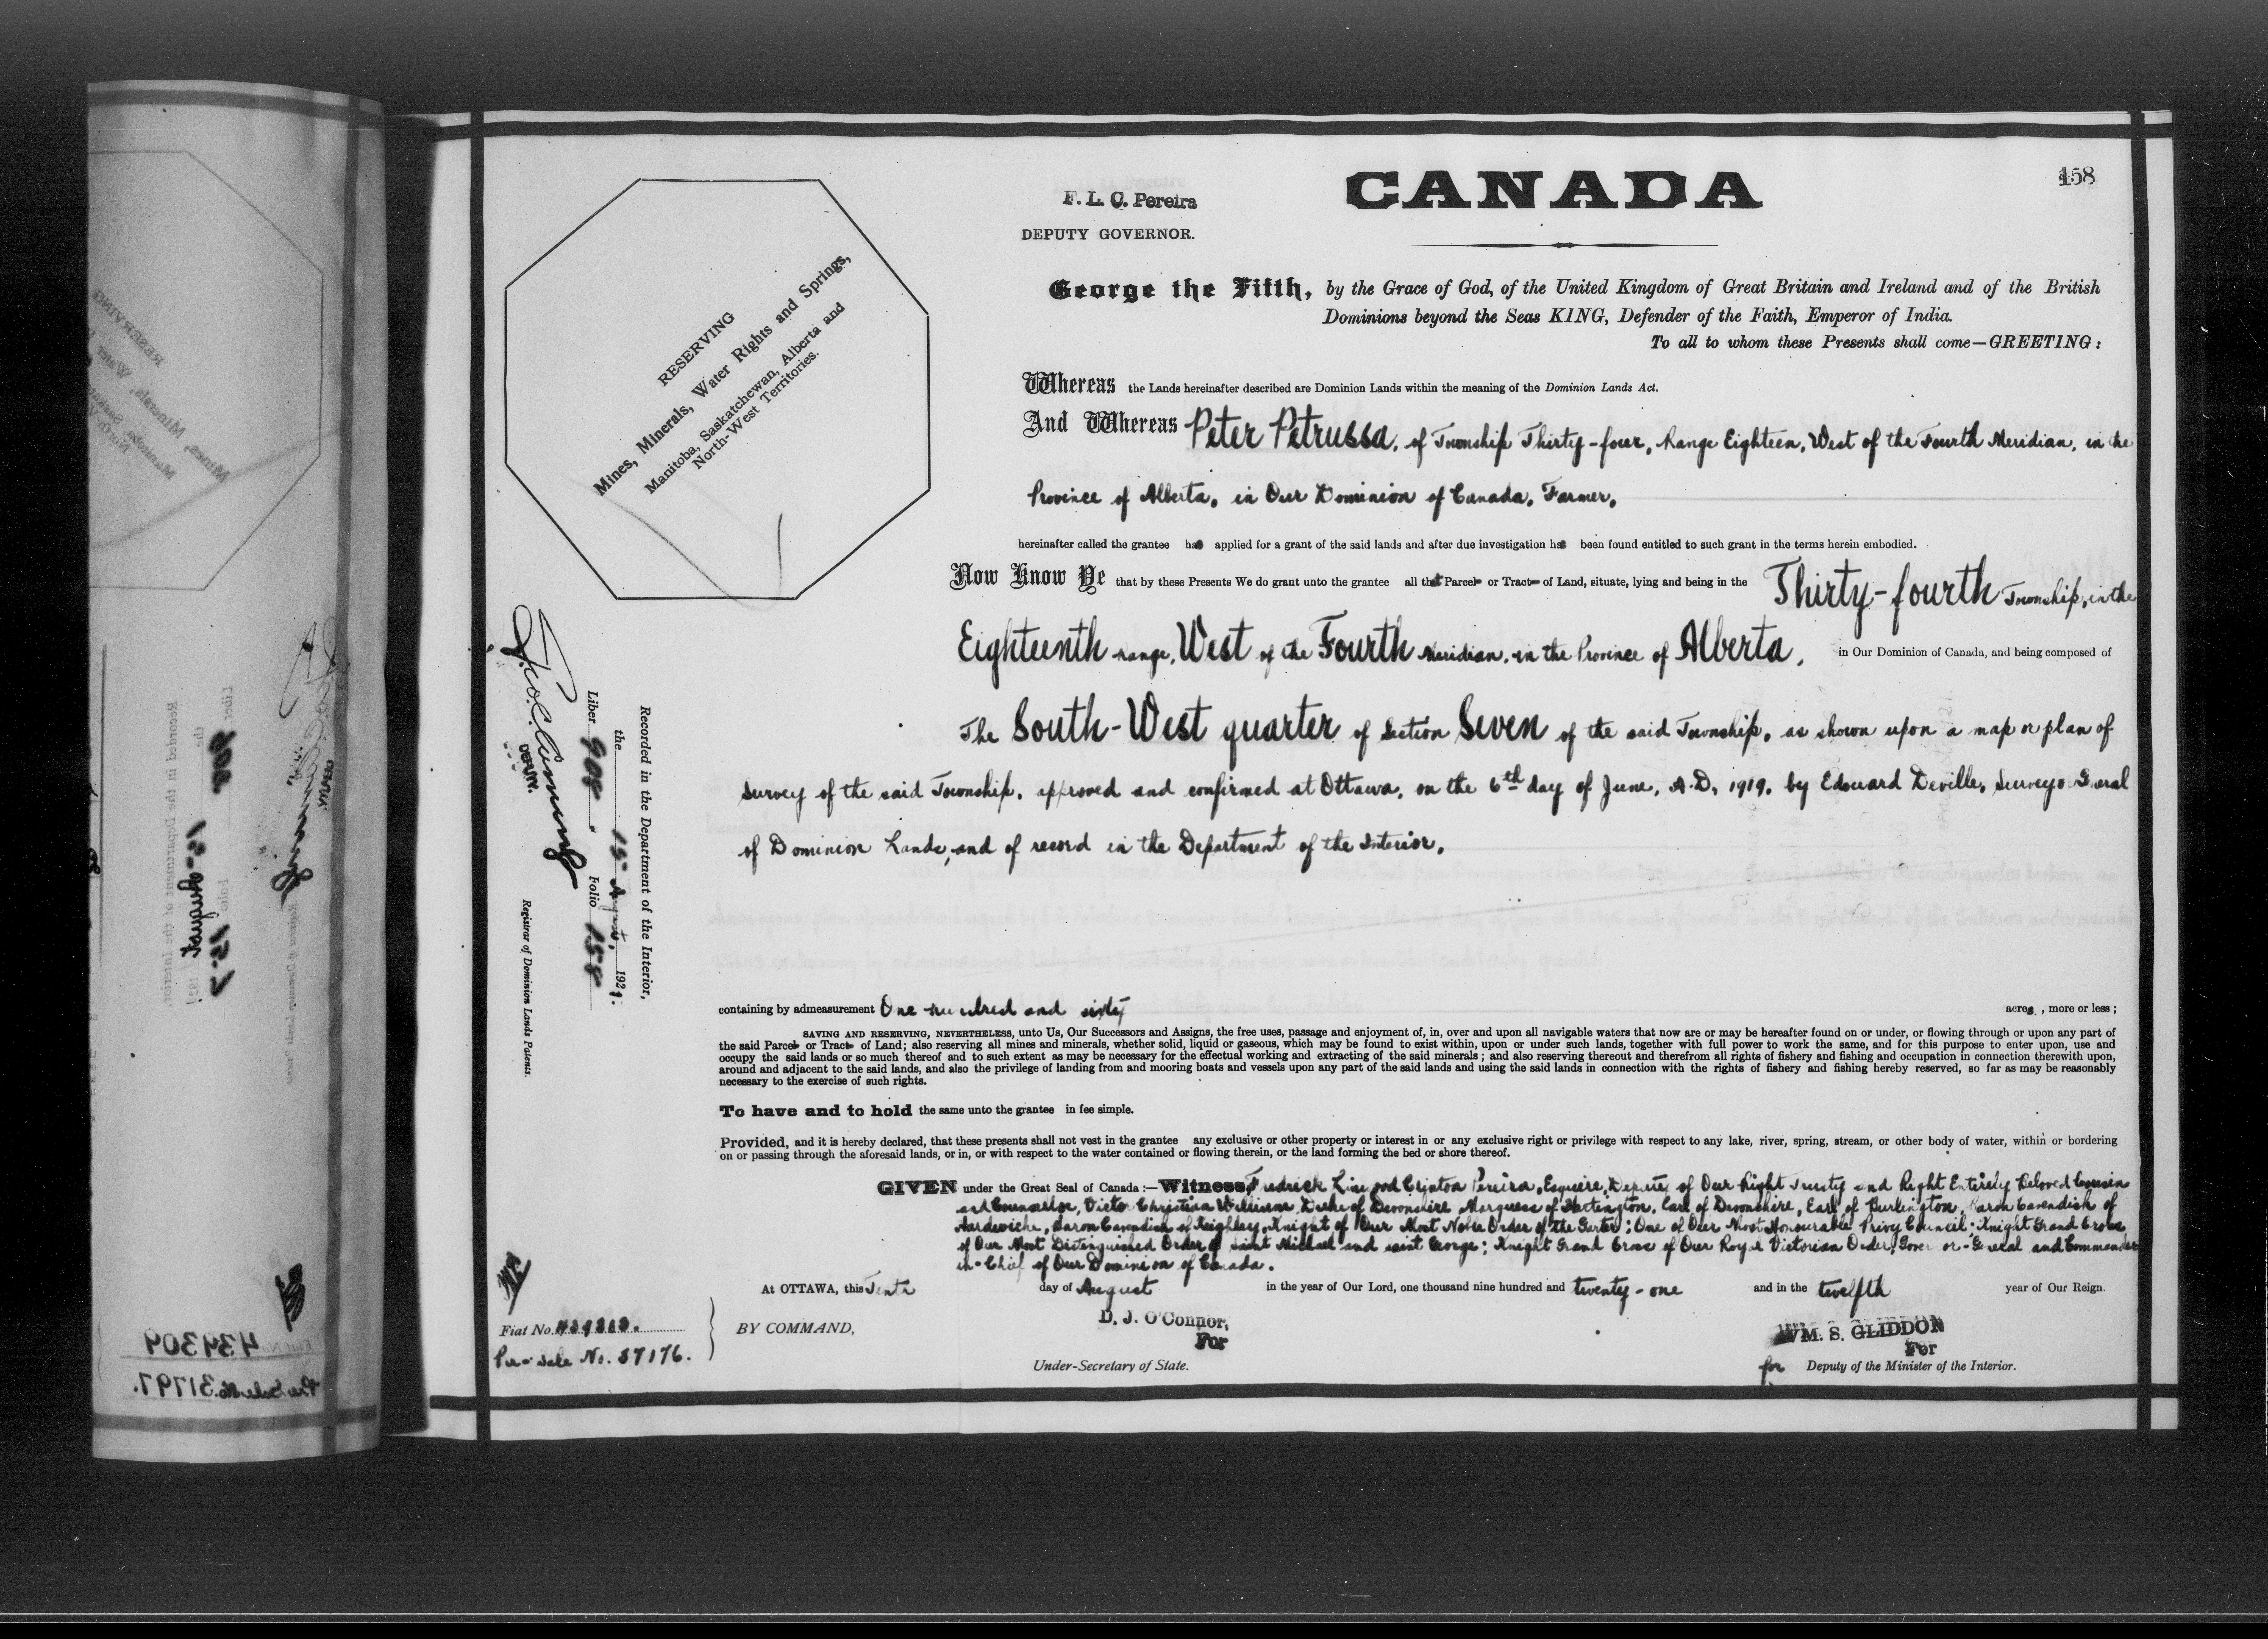 158
F. L. C. Pereira
DEPUTY GOVERNOR.
CANADA
George the Fifth, by the Grace of God, of the United Kingdom of Great Britain and Ireland and of the British
Dominions beyond the Seas KING, Defender of the Faith, Emperor of India.
To all to whom these Presents shall come—GREETING:
RESERVING
Mines, Minerals, Water Rights and Springs,
Manitoba, Saskatchewan, Alberta and
North-West Territories.
Whereas the Lands hereinafter described are Dominion Lands within the meaning of the Dominion Lands Act.
And Whereas Peter Petrussa, of Township Thirty-four, Range Eighteen, West of the Fourth Meridian, in the
Province of Alberta, in Our Dominion of Canada, Farmer,
hereinafter called the grantee has applied for a grant of the said lands and after due investigation has been found entitled to such grant in the terms herein embodied.
Now Know Ye that by these Presents We do grant unto the grantee all that Parcel or Tract of Land, situate, lying and being in the Thirty-fourth Township, in the
Eighteenth range, West of the Fourth Meridian, in the Province of Alberta, in Our Dominion of Canada, and being composed of
The South-West quarter of Section Seven of the said Township, as shown upon a map or plan of
survey of the said Township, approved and confirmed at Ottawa, on the 6th day of June, A.D. 1919, by Edouard Deville, Surveyor General
of Dominion Lands, and of record in the Department of the Interior.
Recorded in the Department of the Interior,
the 15 August, 1921.
Liber 908 Folio 158
DEPUTY
Registrar of Dominion Lands Patents.
containing by admeasurement One hundred and sixty acres, more or less;
SAVING AND RESERVING, NEVERTHELESS, unto Us, Our Successors and Assigns, the free uses, passage and enjoyment of, in, over and upon all navigable waters that now are or may be hereafter found on or under, or flowing through or upon any part of
the said Parcel or Tract of Land; also reserving all mines and minerals, whether solid, liquid or gaseous, which may be found to exist within, upon or under such lands, together with full power to work the same, and for this purpose to enter upon, use and
occupy the said lands or so much thereof and to such extent as may be necessary for the effectual working and extracting of the said minerals; and also reserving thereout and therefrom all rights of fishery and fishing and occupation in connection therewith upon,
around and adjacent to the said lands, and also the privilege of landing from and mooring boats and vessels upon any part of the said lands and using the said lands in connection with the rights of fishery and fishing hereby reserved, so far as may be reasonably
necessary to the exercise of such rights.
To have and to hold the same unto the grantee in fee simple.
Provided, and it is hereby declared, that these presents shall not vest in the grantee any exclusive or other property or interest in or any exclusive right or privilege with respect to any lake, river, spring, stream, or other body of water, within or bordering
on or passing through the aforesaid lands, or in, or with respect to the water contained or flowing therein, or the land forming the bed or shore thereof.
GIVEN under the Great Seal of Canada:—Witness, Fredrick Linwood Clinton Pereira, Esquire, Deputy of Our Right Trusty and Right Entirely Beloved Cousin
and Counsellor, Victor Christian William, Duke of Devonshire, Marquess of Hartington, Earl of Devonshire, Earl of Burlington, Baron Cavendish of
Hardwicke, Baron Cavendish of Keighley, Knight of Our Most Noble Order of the Garter; One of Our Most Honourable Privy Council; Knight Grand Cross
of Our Most Distinguished Order of Saint Michael and Saint George; Knight Grand Cross of Our Royal Victorian Order; Governor-General and Commander
in-Chief of Our Dominion of Canada.
At OTTAWA, this Tenth day of August in the year of Our Lord, one thousand nine hundred and twenty-one and in the twelfth year of Our Reign.
Fiat No.
Pre-Sale No. 37176.
BY COMMAND,
D. J. O'Connor,
For
Under-Secretary of State.
WM. S. GLIDDON
For
for Deputy of the Minister of the Interior.
439309
Pre-Sale No. 31797.